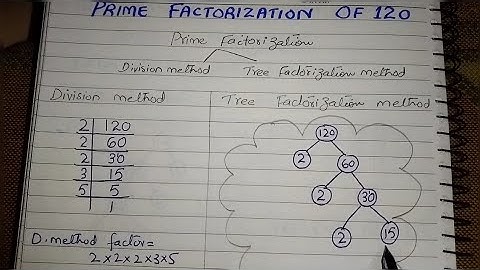 PRIME FACTORIZATION OF 120
Prime Factorization
Division method Tree Factorization method
Division method
2 | 120
2 | 60
2 | 30
3 | 15
5 | 5
1
D. method factor =
2 × 2 × 2 × 3 × 5
Tree Factorization method
120
2 60
2 30
2 15